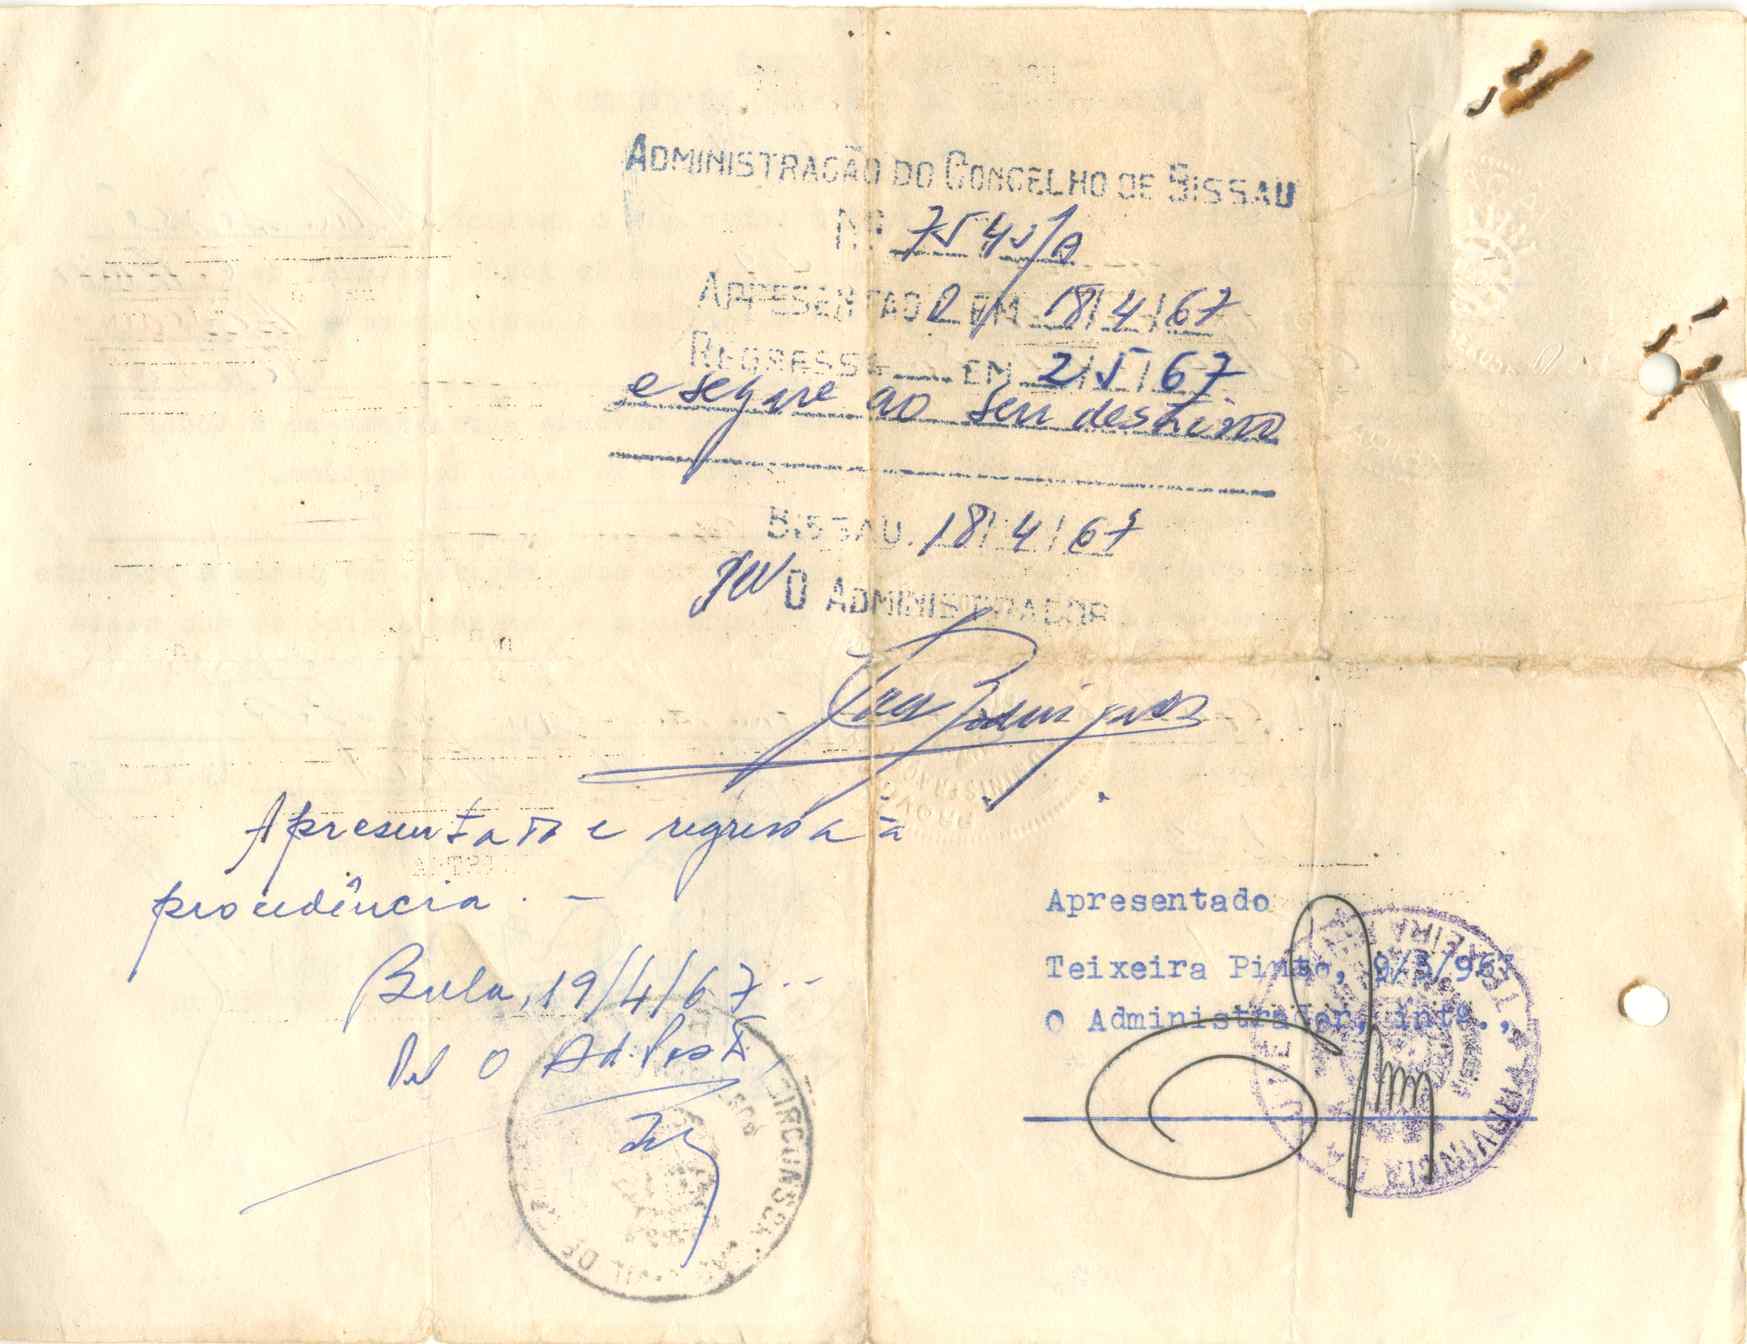 ADMINISTRAÇÃO DO CONCELHO DE BISSAU
Nº 754 /A
APRESENTADO EM 18/4/67
REGRESSA EM 2/5/67
e segue ao seu destino
BISSAU, 18/4/67
O ADMINISTRADOR
Apresentado e regressa à
procedência. —
Bula, 19/4/67. --
O Ad. Posto,
CIRCUNSCR CIVIL DE
Apresentado
Teixeira Pinto, 9/5/967
O Administrador, intº.,
PROVÍNCIA DA
TEIXEIRA